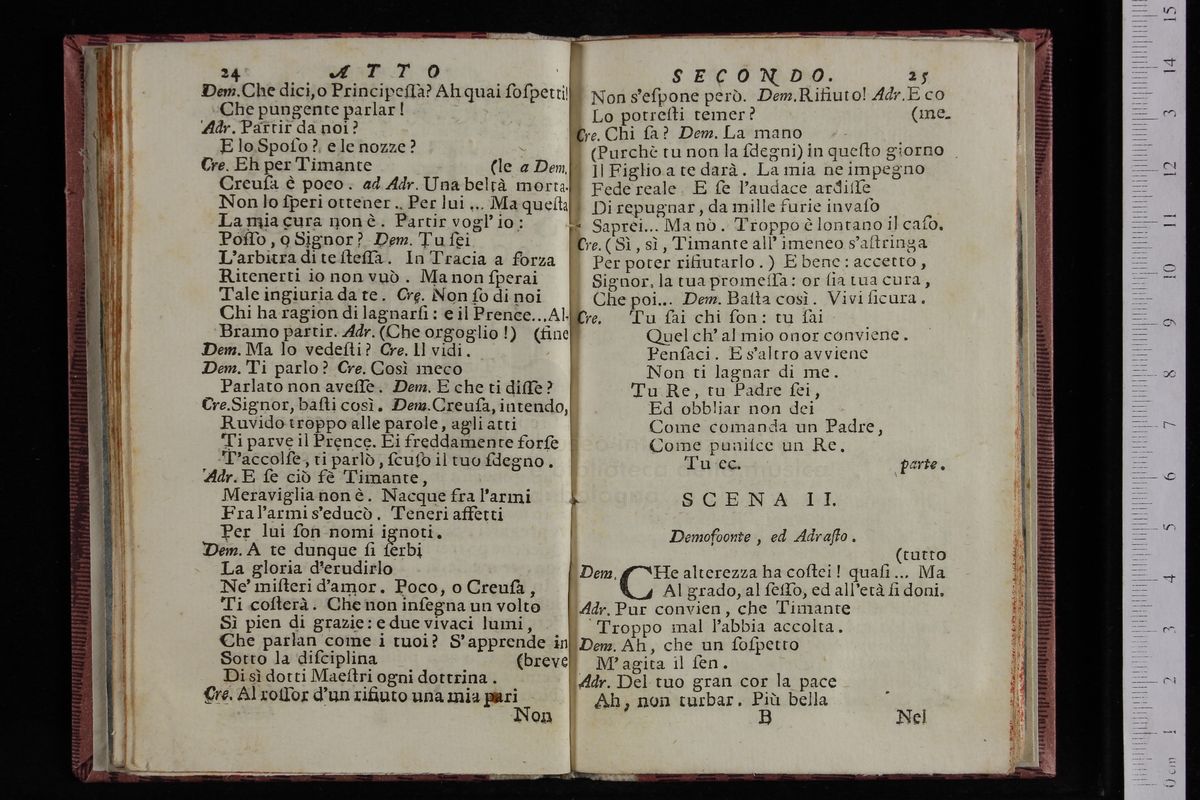 24 ATTO
Dem. Che dici, o Principeſſa? Ah quai ſoſpetti!
Che pungente parlar!
Adr. Partir da noi?
E lo Spoſo? e le nozze?
Cre. Eh per Timante (le a Dem.
Creuſa è poco. ad Adr. Una beltà morta-
Non lo ſperi ottener.. Per lui ... Ma queſta
La mia cura non è. Partir vogl' io:
Poſſo, o Signor? Dem. Tu ſei
L'arbitra di te ſteſſa. In Tracia a forza
Ritenerti io non vuò. Ma non ſperai
Tale ingiuria da te. Cre. Non ſo di noi
Chi ha ragion di lagnarſi: e il Prence...Al-
Bramo partir. Adr. (Che orgoglio!) (fine
Dem. Ma lo vedeſti? Cre. Il vidi.
Dem. Ti parlo? Cre. Così meco
Parlato non aveſſe. Dem. E che ti diſſe?
Cre. Signor, baſti così. Dem. Creuſa, intendo,
Ruvido troppo alle parole, agli atti
Ti parve il Prence. Ei freddamente forſe
T'accolſe, ti parlò, ſcuſo il tuo ſdegno.
Adr. E ſe ciò fè Timante,
Meraviglia non è. Nacque fra l'armi
Fra l'armi s'educò. Teneri affetti
Per lui ſon nomi ignoti.
Dem. A te dunque ſi ſerbi
La gloria d'erudirlo
Ne' miſteri d'amor. Poco, o Creuſa,
Ti coſterà. Che non inſegna un volto
Sì pien di grazie: e due vivaci lumi,
Che parlan come i tuoi? S'apprende in
Sotto la diſciplina (breve
Di sì dotti Maeſtri ogni dottrina.
Cre. Al roſſor d'un rifiuto una mia pari
Non
SECONDO. 25
Non s'eſpone però. Dem. Rifiuto! Adr. E co
Lo potreſti temer? (me-
Cre. Chi ſa? Dem. La mano
(Purchè tu non la ſdegni) in queſto giorno
Il Figlio a te darà. La mia ne impegno
Fede reale E ſe l'audace ardiſſe
Di repugnar, da mille furie invaſo
Saprei... Ma nò. Troppo è lontano il caſo.
Cre. (Sì, sì, Timante all' imeneo s'aſtringa
Per poter rifiutarlo.) E bene: accetto,
Signor, la tua promeſſa: or ſia tua cura,
Che poi... Dem. Baſta così. Vivi ſicura.
Cre. Tu ſai chi ſon: tu ſai
Quel ch' al mio onor conviene.
Penſaci. E s'altro avviene
Non ti lagnar di me.
Tu Re, tu Padre ſei,
Ed obbliar non dei
Come comanda un Padre,
Come puniſce un Re.
Tu ec. parte.
SCENA II.
Demofoonte, ed Adraſto.
(tutto
Dem. CHe alterezza ha coſtei! quaſi ... Ma
Al grado, al ſeſſo, ed all'età ſi doni.
Adr. Pur convien, che Timante
Troppo mal l'abbia accolta.
Dem. Ah, che un ſoſpetto
M'agita il ſen.
Adr. Del tuo gran cor la pace
Ah, non turbar. Più bella
B Nel
0 cm 1 2 3 4 5 6 7 8 9 10 11 12 13 14 15